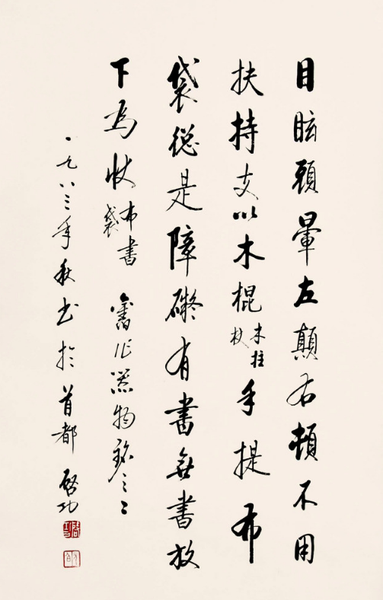 目眩頭暈左顛右頓不用
扶持支以木棍木拄杖手提布
袋總是障礙有書無書放
下為快布書袋 舊作器物銘之二
一九八三年秋書於首都 啓功